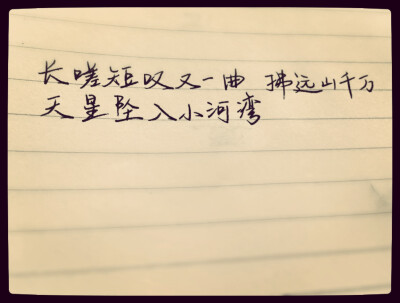 长嗟短叹又一曲 拂远山千万
天星坠入小河湾